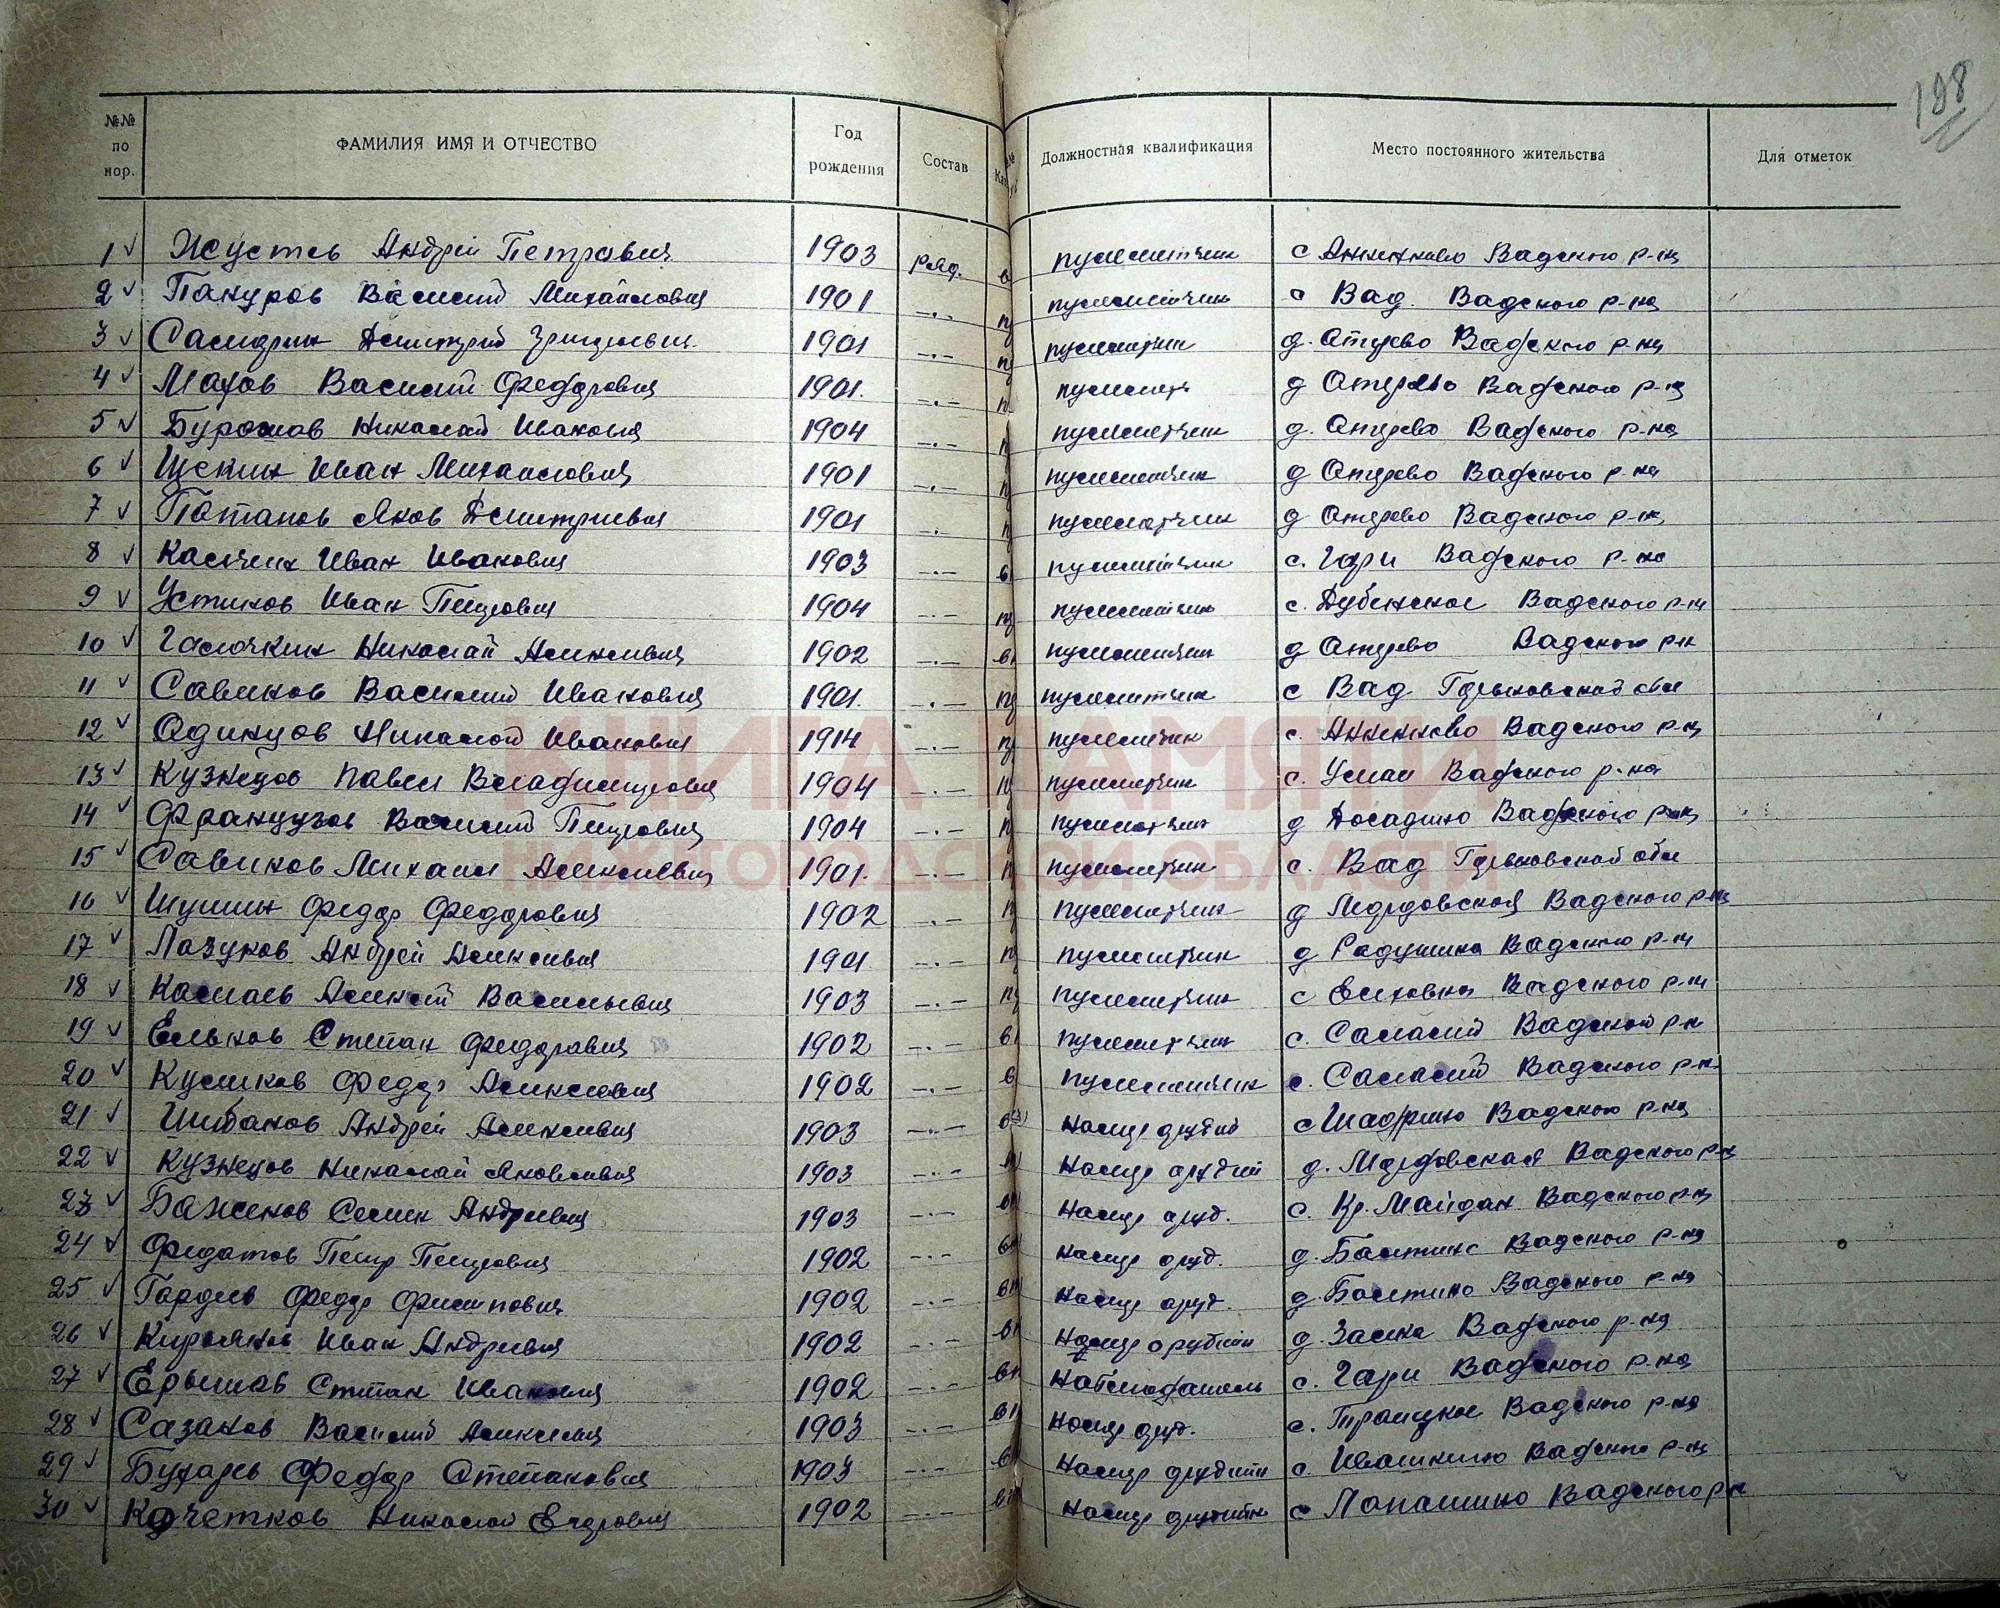 198
№№ по нор. ФАМИЛИЯ ИМЯ И ОТЧЕСТВО Год рождения Состав Должностная квалификация Место постоянного жительства Для отметок
1 Жустев Андрей Петрович 1903 ряд. пулеметчик с Анненково Вадского р-на
2 Пануров Василий Михайлович 1901 -.- пулеметчик с Вад. Вадского р-на
3 Самдрин Дмитрий Григорьевич 1901 -.- пулеметчик д. Отрево Вадского р-на
4 Махов Василий Федорович 1901. -.- д Отрево Вадского р-на
5 Николай Иванович 1904 -.- пулеметчик д. Отрево Вадского р-на
6 Щекин Иван Михайлович 1901 -.- пулеметчик д Отрево Вадского р-на
7 Потапов Яков Дмитриевич 1901 -.- пулеметчик д Отрево Вадского р-на
8 Иван Иванович 1903 -.- пулеметчик с. Гари Вадского р-на
9 Устинов Иван Петрович 1904 -.- пулеметчик с. Дубенское Вадского р-на
10 Галочкин Николай Алексеевич 1902 -.- пулеметчик д Отрево Вадского р-н
11 Савинов Василий Иванович 1901. -.- пулеметчик с Вад Горьковской обл
12 Одинцов Николай Иванович 1914 -.- пулеметчик с. Анненково Вадского р-на
13 Кузнецов Павел Владимирович 1904 -.- пулеметчик с. Умай Вадского р-на
14 Французов Василий Петрович 1904 -.- пулеметчик д Досадино Вадского р-на
15 Савинов Михаил Алексеевич 1901. -.- пулеметчик с. Вад Горьковской обл
16 Шушин Федор Федорович 1902 -.- пулеметчик д Мордовская Вадского р-на
17 Лазуков Андрей Алексеевич 1901 -.- пулеметчик д Радушина Вадского р-на
18 Алексей Васильевич 1903 -.- пулеметчик с Елховка Вадского р-на
19 Ельков Степан Федорович 1902 -.- пулеметчик с. Салалей Вадской р-н
20 Куликов Федор Алексеевич 1902 -.- пулеметчик с. Салалей Вадского р-н
21 Шибанов Андрей Алексеевич 1903 -.- Номер орудий с Шадрино Вадского р-на
22 Кузнецов Николай Яковлевич 1903 -.- Номер орудий д. Мордовская Вадского р-н
23 Баженов Семен Андреевич 1903 -.- Номер оруд. с. Кр. Майдан Вадского р-на
24 Федотов Петр Петрович 1902 -.- Номер оруд. д. Болтино Вадского р-на
25 Гордеев Федор Филиппович 1902 -.- Номер оруд. д. Болтино Вадского р-на
26 Кирьяков Иван Андреевич 1902 -.- Номер орудий д. Зайка Вадского р-на
27 Ермаков Степан Иванович 1902 -.- Наблюдатель с. Гари Вадского р-на
28 Сазанов Василий Алексеевич 1903 -.- Номер оруд. с. Троицкое Вадского р-на
29 Бухарев Федор Степанович 1903 -.- Номер орудий с. Ивашкино Вадского р-на
30 Кочетков Николай Егорович 1902 -.- Номер орудий с Лопатино Вадского р-н
КНИГА ПАМЯТИ
НИЖЕГОРОДСКОЙ ОБЛАСТИ